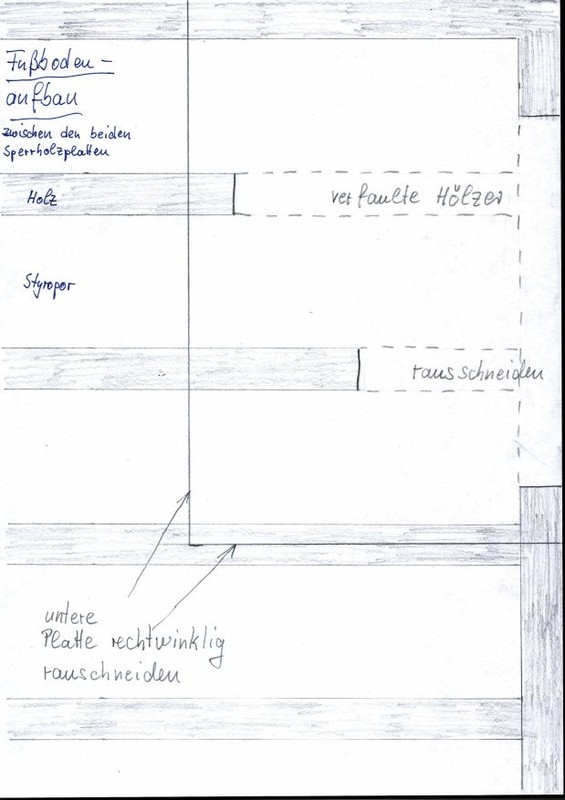 Fußboden-
aufbau
zwischen den beiden
Sperrholzplatten
Holz
verfaulte Hölzer
Styropor
rausschneiden
untere
Platte rechtwinklig
rauschneiden